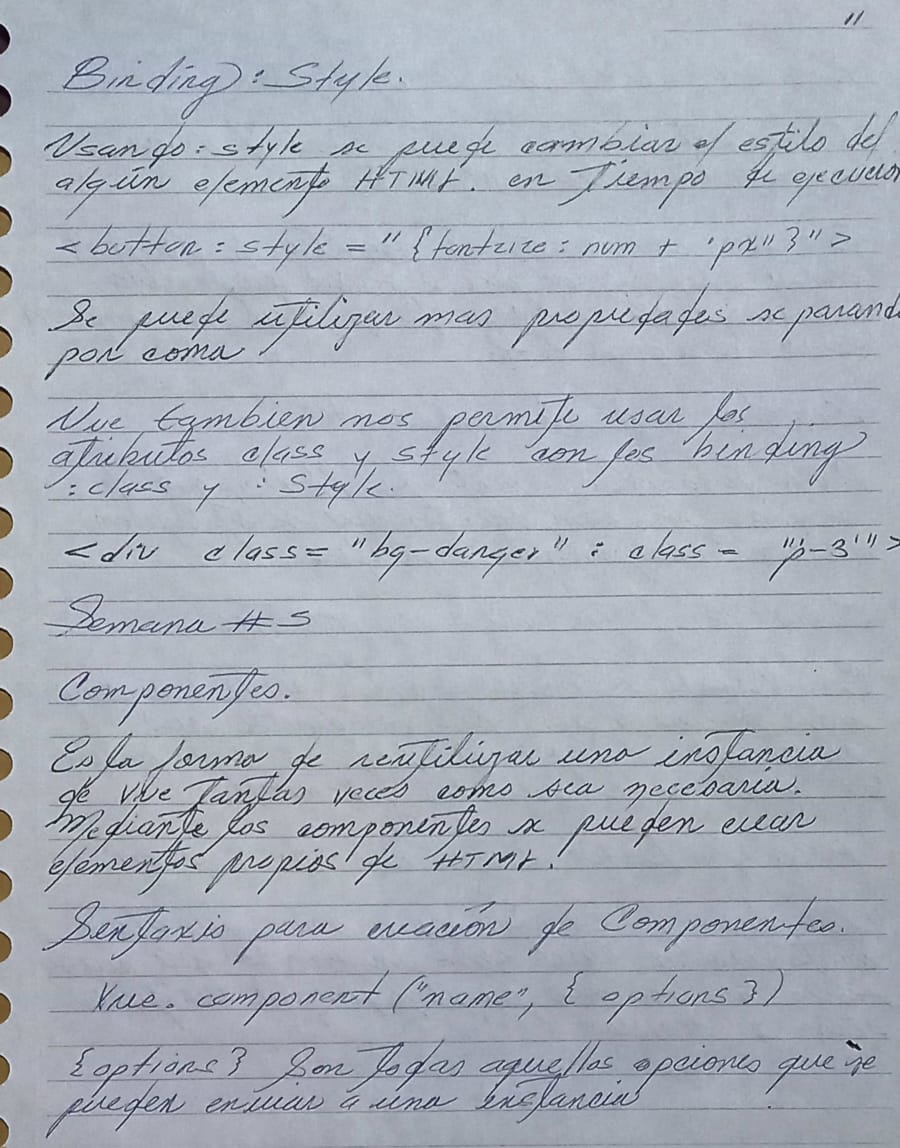 11
Binding: Style.
Usando :style se puede cambiar el estilo del
algún elemento HTML. en Tiempo de ejecucion
<button :style = "{fontzize: num + 'px"}">
Se puede utilizar mas propiedades separand
por coma
Vue tambien nos permite usar los
atributos class y style con los binding
:class y :Style.
<div class= "bg-danger" :class= "'p-3'">
Semana #5
Componentes.
Es la forma de reutilizar una instancia
de Vue Tantas veces como sea necesaria.
Mediante los componentes se pueden crear
elementos propios de HTML.
Sentaxis para creación de Componentes.
Vue.component ("name", { options })
{options} Son todas aquellas opciones que se
pueden enviar a una instancia